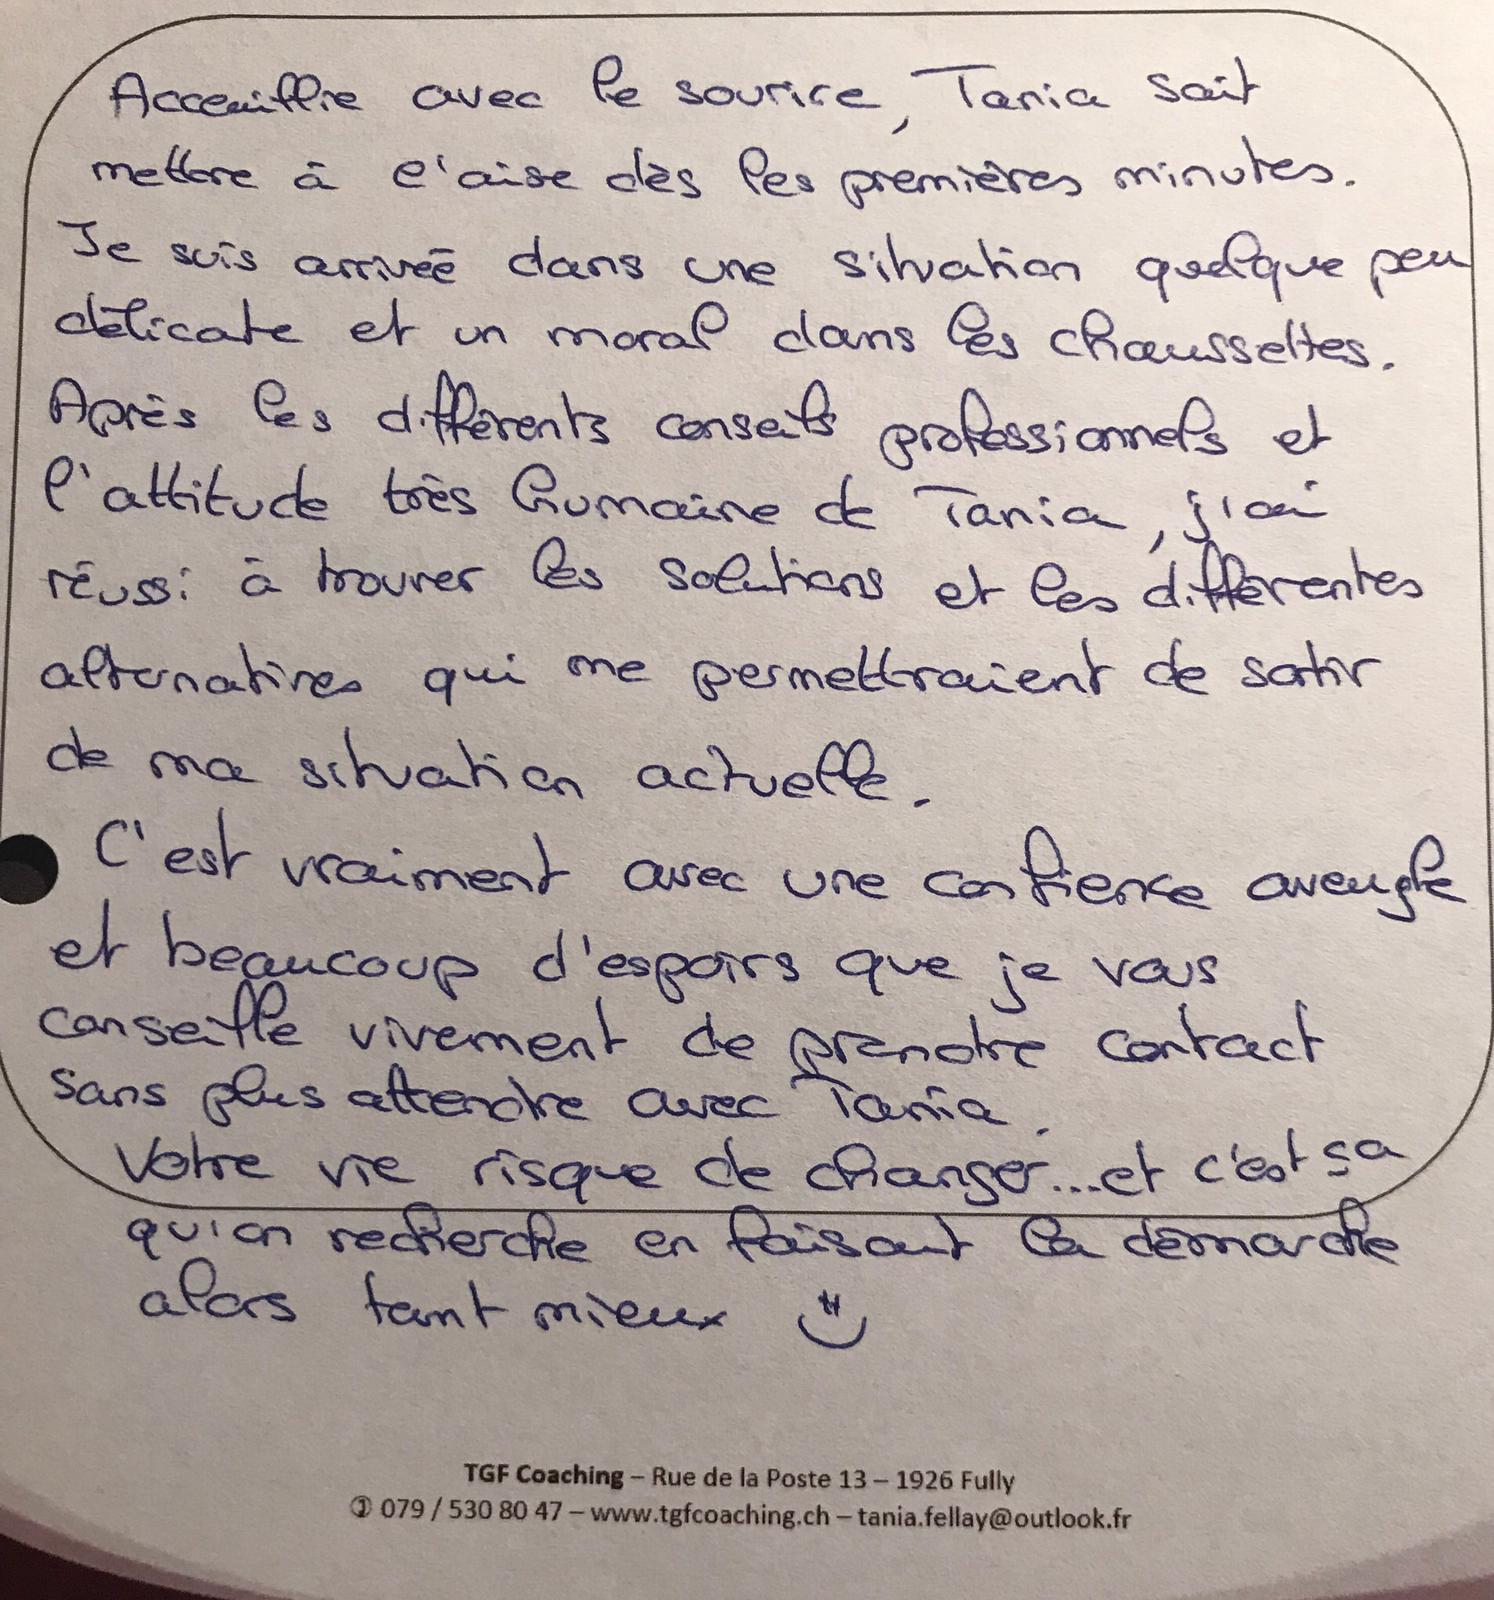 Acceuillie avec le sourire, Tania sait
mettre à l'aise dès les premières minutes.
Je suis arrivée dans une situation quelque peu
délicate et un moral dans les chaussettes.
Après les différents conseils professionnels et
l'attitude très humaine de Tania, j'ai
réussi à trouver les solutions et les différentes
alternatives qui me permettraient de sortir
de ma situation actuelle.
C'est vraiment avec une confience aveugle
et beaucoup d'espoirs que je vous
conseille vivement de prendre contact
sans plus attendre avec Tania.
Votre vie risque de changer...et c'est ça
qu'on recherche en faisant la démarche
alors tant mieux
TGF Coaching – Rue de la Poste 13 – 1926 Fully
✆ 079 / 530 80 47 – www.tgfcoaching.ch – tania.fellay@outlook.fr